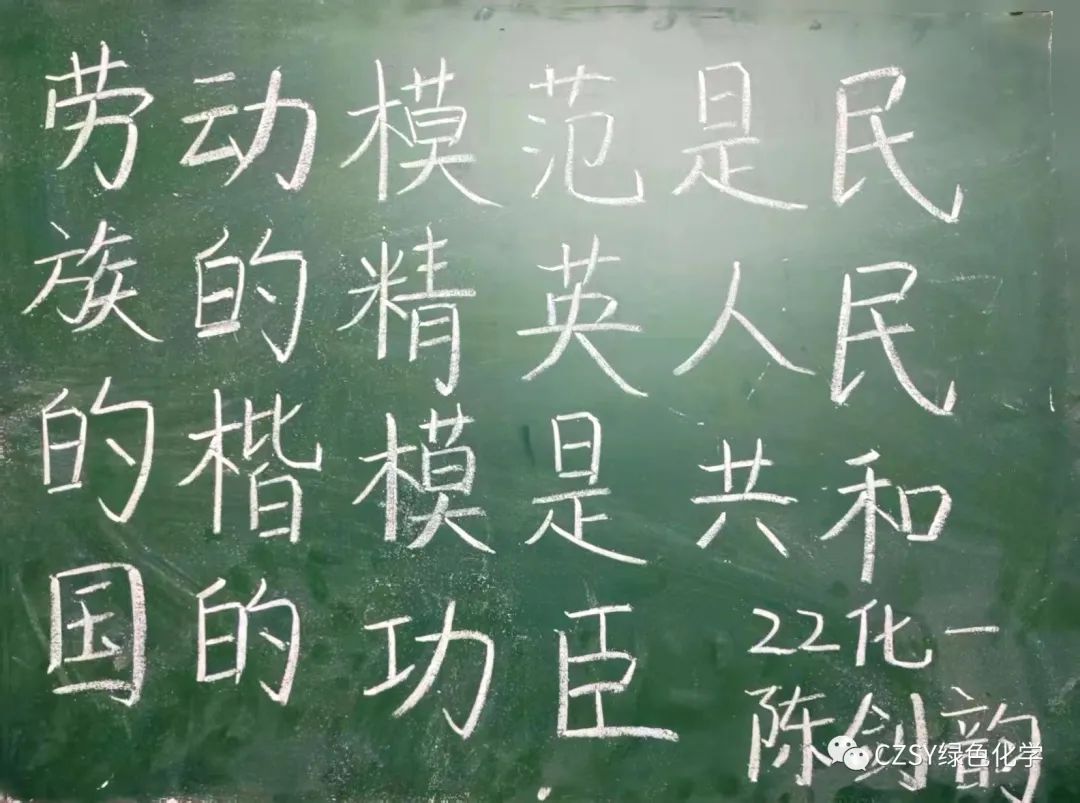 劳动模范是民
族的精英人民
的楷模是共和
国的功臣
22化一
陈剑韵
CZSY绿色化学